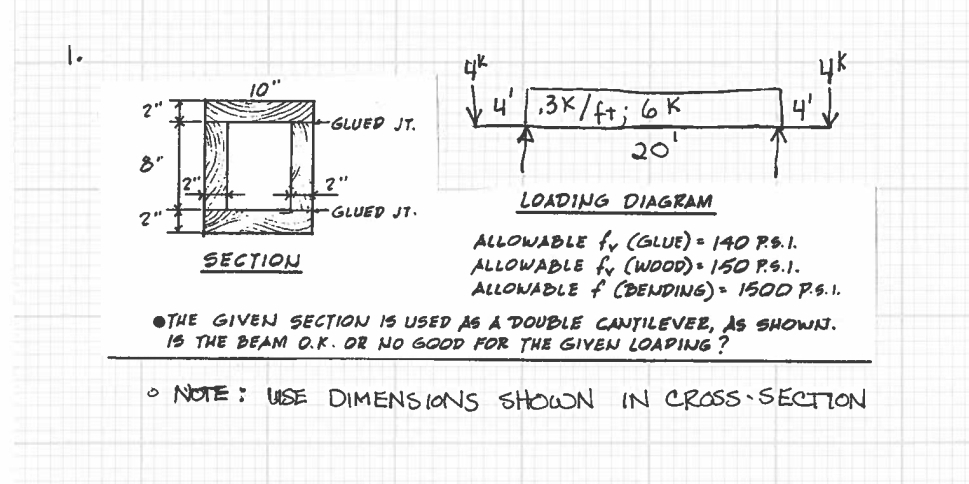 1.
10"
2"
GLUED JT.
8"
2"
2"
2"
GLUED JT.
SECTION
4K
4K
4'
.3K/ft; 6K
4'
20'
LOADING DIAGRAM
ALLOWABLE fv (GLUE) = 140 P.S.I.
ALLOWABLE fv (WOOD) = 150 P.S.I.
ALLOWABLE f (BENDING) = 1500 P.S.I.
● THE GIVEN SECTION IS USED AS A DOUBLE CANTILEVER, AS SHOWN.
IS THE BEAM O.K. OR NO GOOD FOR THE GIVEN LOADING?
○ NOTE: USE DIMENSIONS SHOWN IN CROSS-SECTION